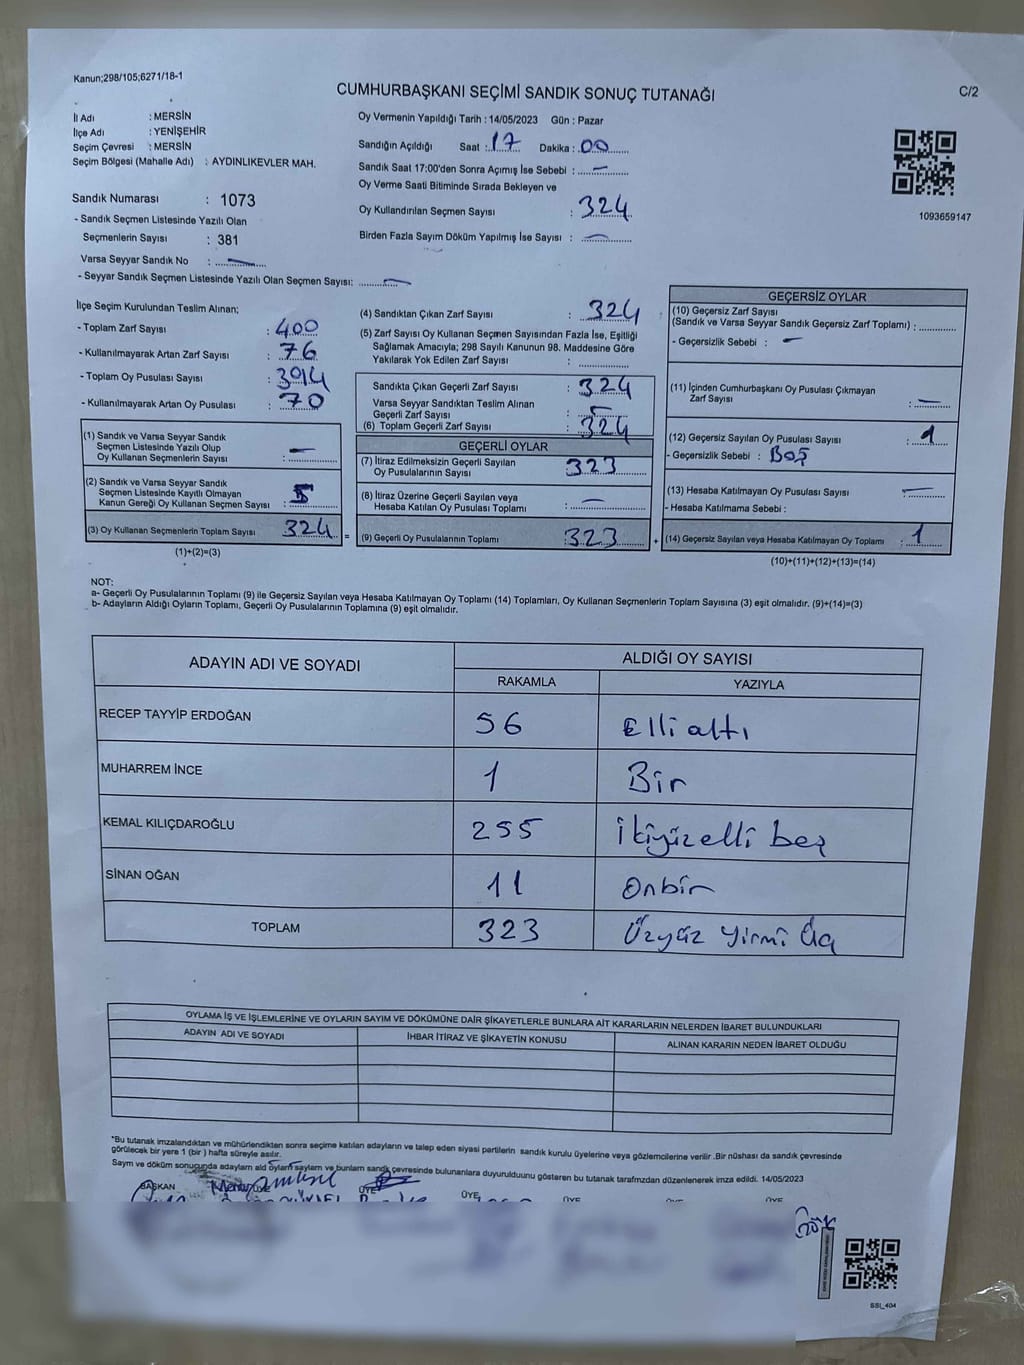 Kanun;298/105;6271/18-1
CUMHURBAŞKANI SEÇİMİ SANDIK SONUÇ TUTANAĞI
C/2
İl Adı : MERSİN
İlçe Adı : YENİŞEHİR
Seçim Çevresi : MERSİN
Seçim Bölgesi (Mahalle Adı) : AYDINLIKEVLER MAH.
Sandık Numarası : 1073
- Sandık Seçmen Listesinde Yazılı Olan
Seçmenlerin Sayısı : 381
Varsa Seyyar Sandık No : —
- Seyyar Sandık Seçmen Listesinde Yazılı Olan Seçmen Sayısı: —
Oy Vermenin Yapıldığı Tarih : 14/05/2023 Gün : Pazar
Sandığın Açıldığı Saat : 17 Dakika : 00
Sandık Saat 17:00'den Sonra Açımış İse Sebebi : —
Oy Verme Saati Bitiminde Sırada Bekleyen ve
Oy Kullandırılan Seçmen Sayısı : 324
Birden Fazla Sayım Döküm Yapılmış İse Sayısı : —
1093659147
İlçe Seçim Kurulundan Teslim Alınan;
- Toplam Zarf Sayısı : 400
- Kullanılmayarak Artan Zarf Sayısı : 76
- Toplam Oy Pusulası Sayısı : 
- Kullanılmayarak Artan Oy Pusulası : 70
(1) Sandık ve Varsa Seyyar Sandık
Seçmen Listesinde Yazılı Olup
Oy Kullanan Seçmenlerin Sayısı : —
(2) Sandık ve Varsa Seyyar Sandık
Seçmen Listesinde Kayıtlı Olmayan
Kanun Gereği Oy Kullanan Seçmen Sayısı :
(3) Oy Kullanan Seçmenlerin Toplam Sayısı 324 =
(1)+(2)=(3)
(4) Sandıktan Çıkan Zarf Sayısı : 324
(5) Zarf Sayısı Oy Kullanan Seçmen Sayısından Fazla İse, Eşitliği
Sağlamak Amacıyla; 298 Sayılı Kanunun 98. Maddesine Göre
Yakılarak Yok Edilen Zarf Sayısı :
Sandıkta Çıkan Geçerli Zarf Sayısı : 324
Varsa Seyyar Sandıktan Teslim Alınan
Geçerli Zarf Sayısı :
(6) Toplam Geçerli Zarf Sayısı : 324
GEÇERLİ OYLAR
(7) İtiraz Edilmeksizin Geçerli Sayılan
Oy Pusulalarının Sayısı 323
(8) İtiraz Üzerine Geçerli Sayılan veya
Hesaba Katılan Oy Pusulası Toplamı : —
(9) Geçerli Oy Pusulalarının Toplamı : 323 +
GEÇERSİZ OYLAR
(10) Geçersiz Zarf Sayısı
(Sandık ve Varsa Seyyar Sandık Geçersiz Zarf Toplamı) :
- Geçersizlik Sebebi : —
(11) İçinden Cumhurbaşkanı Oy Pusulası Çıkmayan
Zarf Sayısı : —
(12) Geçersiz Sayılan Oy Pusulası Sayısı : 1
- Geçersizlik Sebebi : Boş
(13) Hesaba Katılmayan Oy Pusulası Sayısı : —
- Hesaba Katılmama Sebebi :
(14) Geçersiz Sayılan veya Hesaba Katılmayan Oy Toplamı : 1
(10)+(11)+(12)+(13)=(14)
NOT:
a- Geçerli Oy Pusulalarının Toplamı (9) ile Geçersiz Sayılan veya Hesaba Katılmayan Oy Toplamı (14) Toplamları, Oy Kullanan Seçmenlerin Toplam Sayısına (3) eşit olmalıdır. (9)+(14)=(3)
b- Adayların Aldığı Oyların Toplamı, Geçerli Oy Pusulalarının Toplamına (9) eşit olmalıdır.
ADAYIN ADI VE SOYADI ALDIĞI OY SAYISI
RAKAMLA YAZIYLA
RECEP TAYYİP ERDOĞAN 56 Elli altı
MUHARREM İNCE 1 Bir
KEMAL KILIÇDAROĞLU 255 İkiyüzelli beş
SİNAN OĞAN 11 Onbir
TOPLAM 323 Üzyüz yirmi Üç
OYLAMA İŞ VE İŞLEMLERİNE VE OYLARIN SAYIM VE DÖKÜMÜNE DAİR ŞİKAYETLERLE BUNLARA AİT KARARLARIN NELERDEN İBARET BULUNDUKLARI
ADAYIN ADI VE SOYADI İHBAR İTİRAZ VE ŞİKAYETİN KONUSU ALINAN KARARIN NEDEN İBARET OLDUĞU
*Bu tutanak imzalandıktan ve mühürlendikten sonra seçime katılan adayların ve talep eden siyasi partilerin sandık kurulu üyelerine veya gözlemcilerine verilir .Bir nüshası da sandık çevresinde
görülecek bir yere 1 (bir ) hafta süreyle asılır.
Sayım ve döküm sonucunda adayların aldı öyların sayların ve bunların sandık çevresinde bulunanlara duyurulduunu gösteren bu tutanak tarafmzdan düzenlenerek imza edildi. 14/05/2023
BAŞKAN ÜYE ÜYE ÜYE ÜYE ÜYE
SSI_404